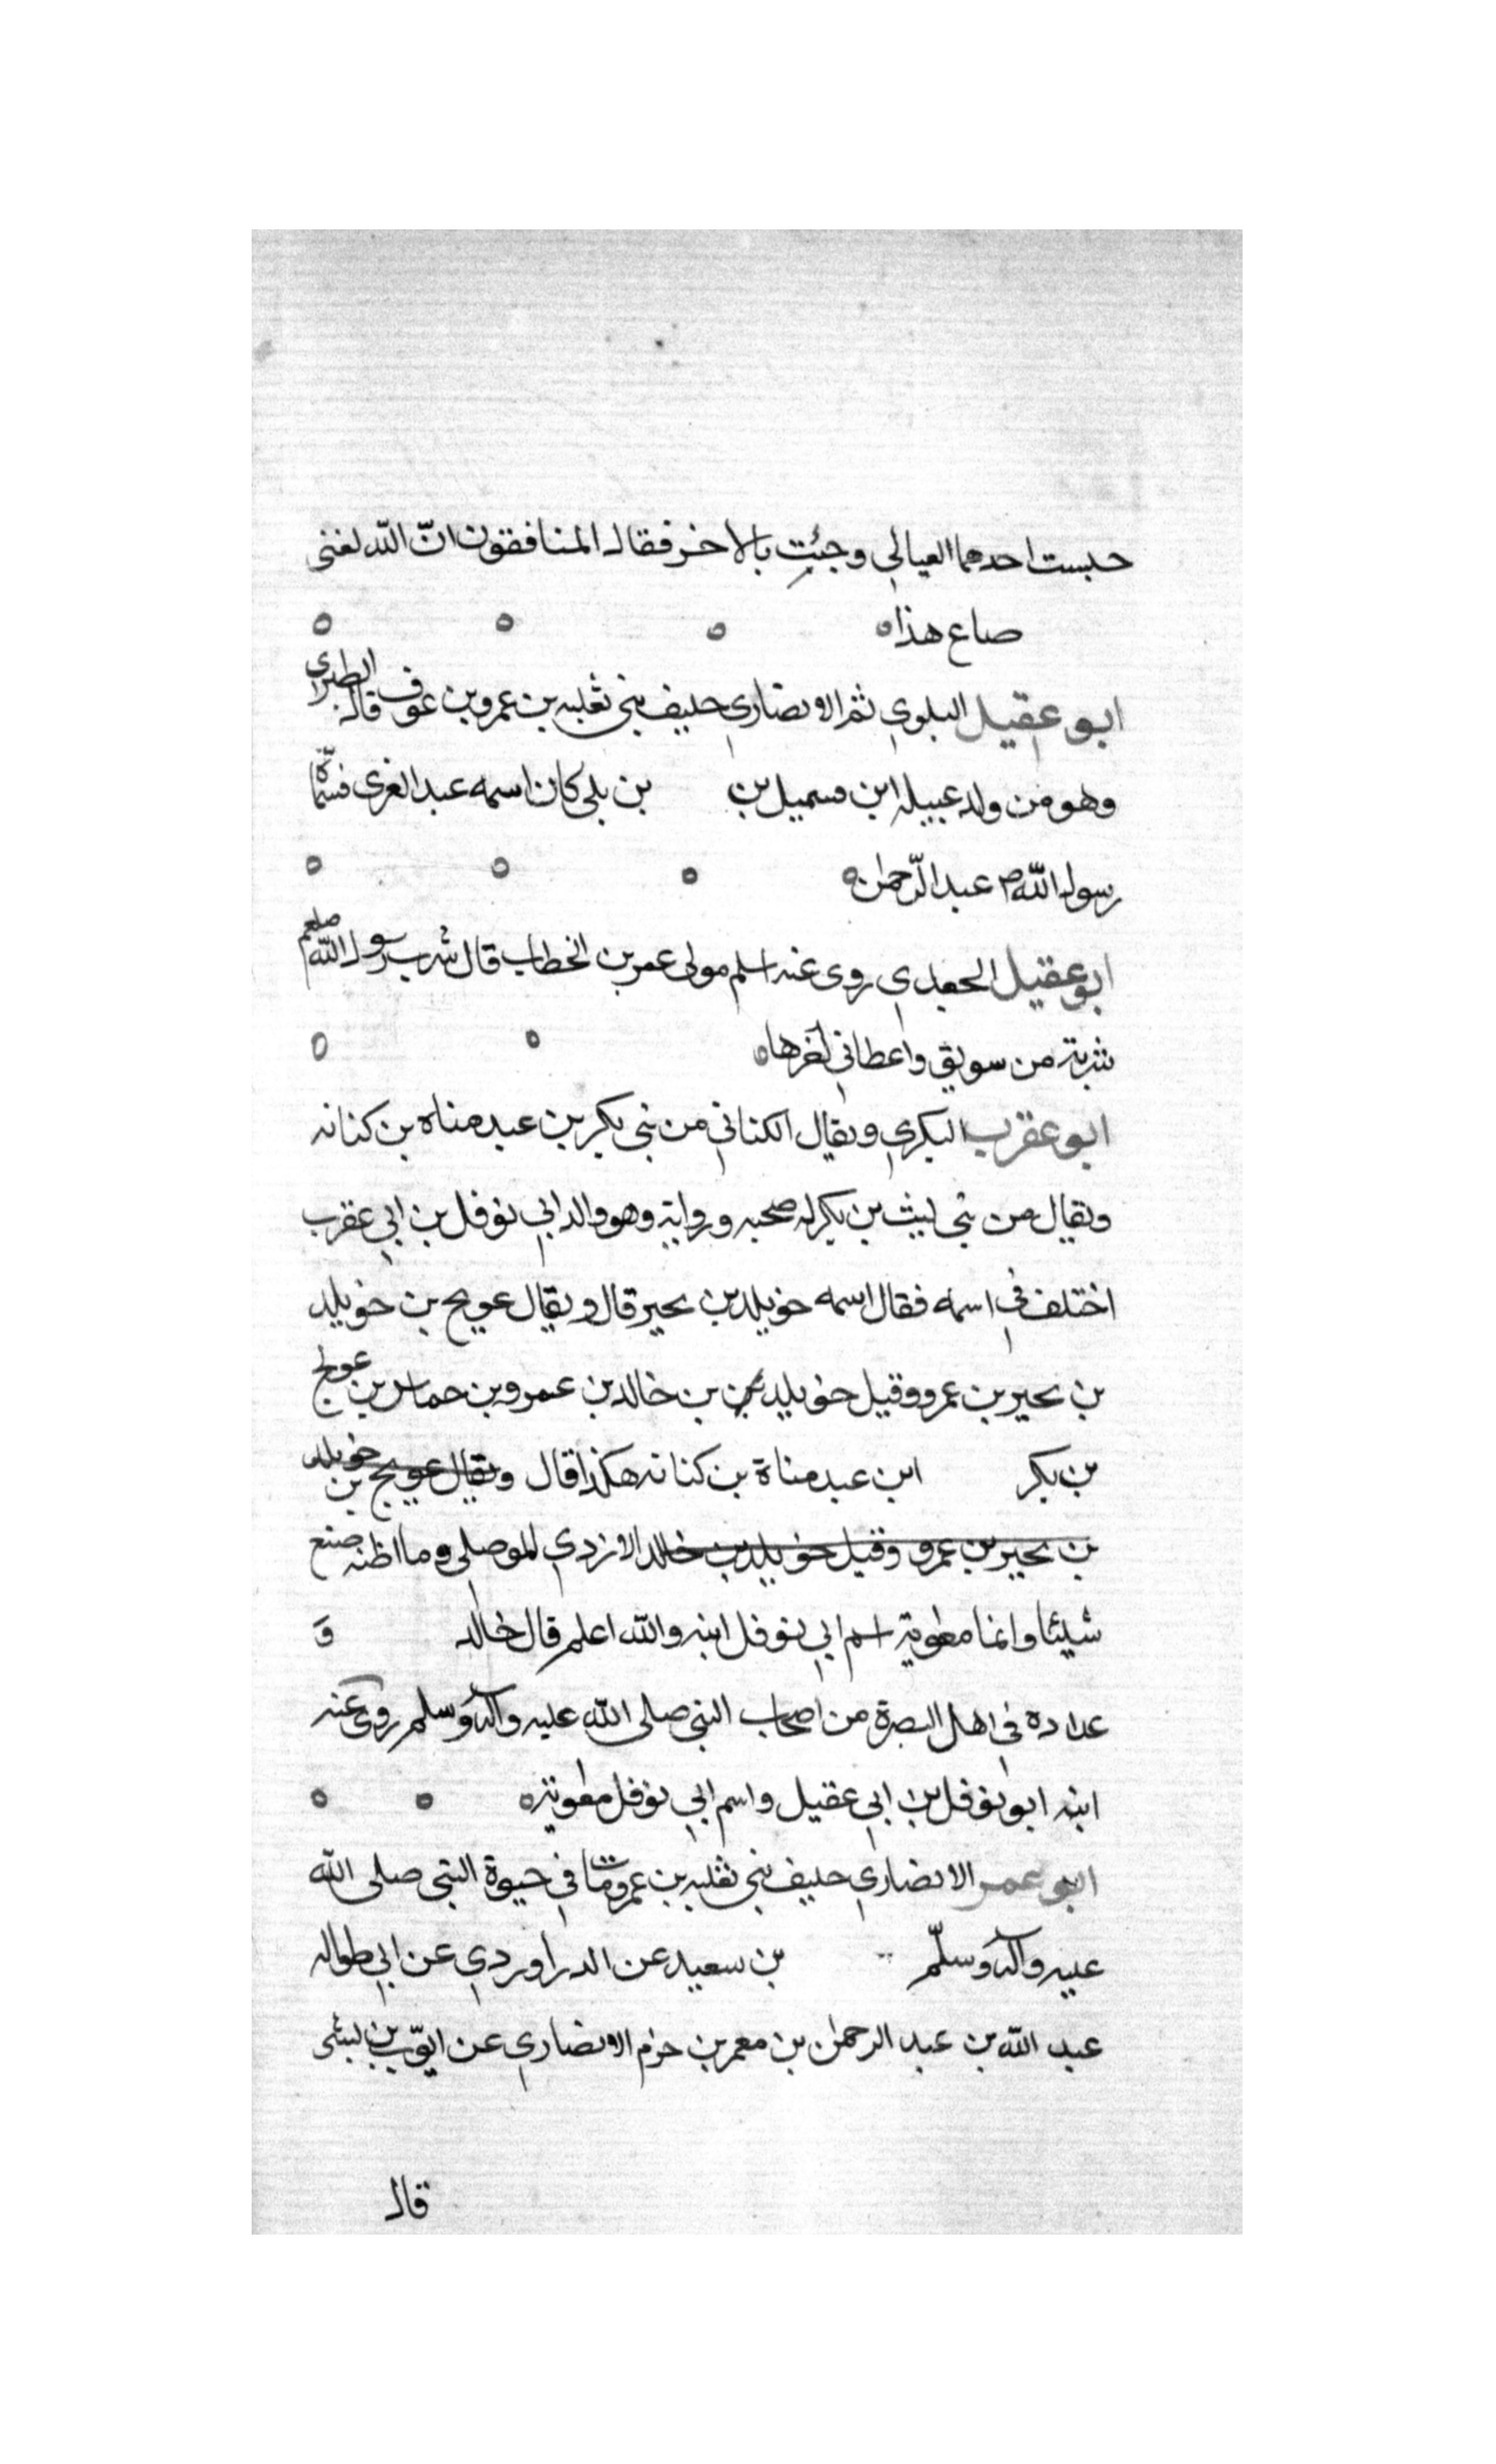 حبست احدهما العيالي وجئت بالاخر فقال المنافقون انّ الله لغنى
صاع هذا
ابو عقيل البلوي ثم الانصاري حليف بنى ثعلبه بن عمرو بن عوف قال الطبرى
وهو من ولد عبيله ابن قسميل بن بن بلى كان اسمه عبد العزى فسمّاه
رسول الله ص عبد الرّحمن
ابو عقيل الجعدي روى عنه اسلم مولى عمر بن الخطاب قال شرب رسول الله صلعم
شربة من سويق واعطاني اخرها
ابو عقرب البكري ويقال الكناني من بنى بكر بن عبد مناه بن كنانه
ويقال من بنى ليث بن بكر له صحبه ورواية وهو والد ابي نوفل بن ابي عقرب
اختلف في اسمه فقال اسمه خويلد بن بحير قال ويقال عويج بن خويلد
بن بحير بن عمرو وقيل خويلد بن خالد بن عمرو بن حماس بن عويج
بن بكر ابن عبد مناة بن كنانه هكذا قال ويقال عويج بن خويلد
بن بحير بن عمرو وقيل خويلد بن خالد الازدي الموصلي وما اظنه صنع
شيئا وانما معوية اسم ابي نوفل ابنه والله اعلم قال خالد و
عداده في اهل البصرة من اصحاب النبي صلى الله عليه وآله وسلم روى عنه
ابنه ابو نوفل بن ابي عقيل واسم ابي نوفل معوية
ابو عمر الانصاري حليف بنى ثعلبه بن عمرو مات في حيوة النبى صلى الله
عليه وآله وسلّم بن سعيد عن الدراوردي عن ابي طواله
عبد الله بن عبد الرحمن بن معمر بن حزم الانصاري عن ايّوب بن
قال